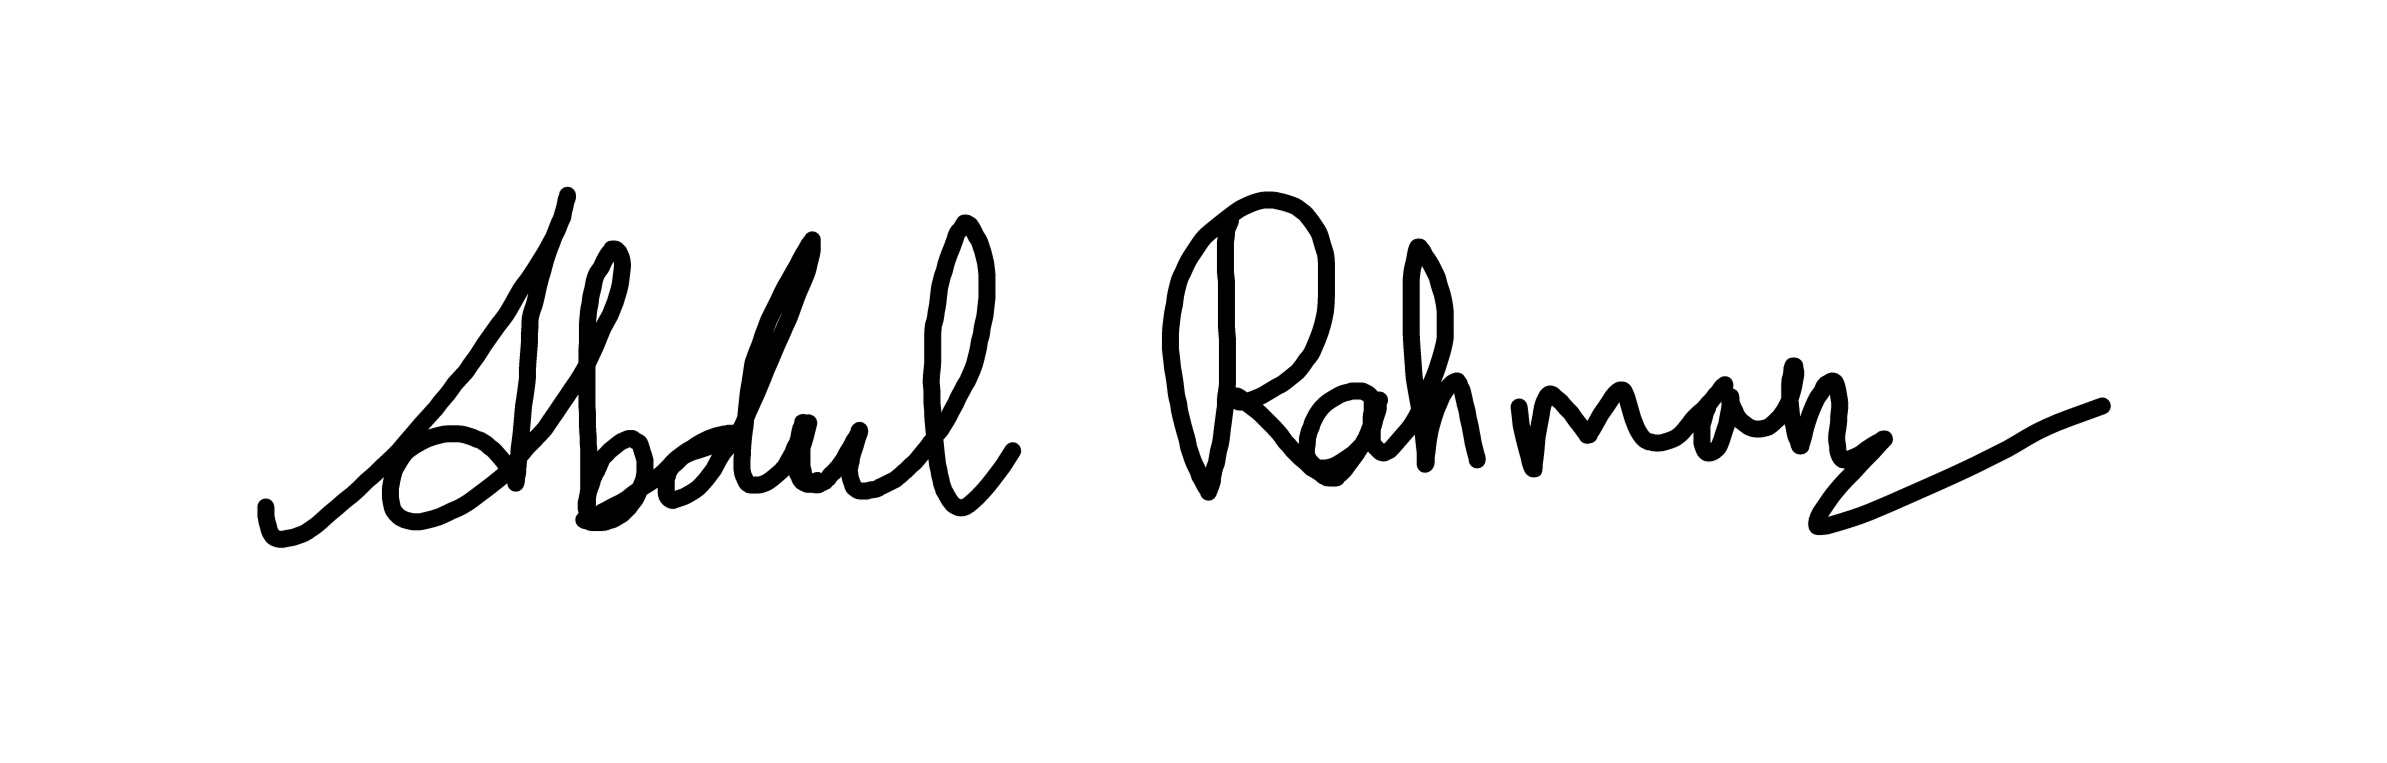 Abdul Rahman